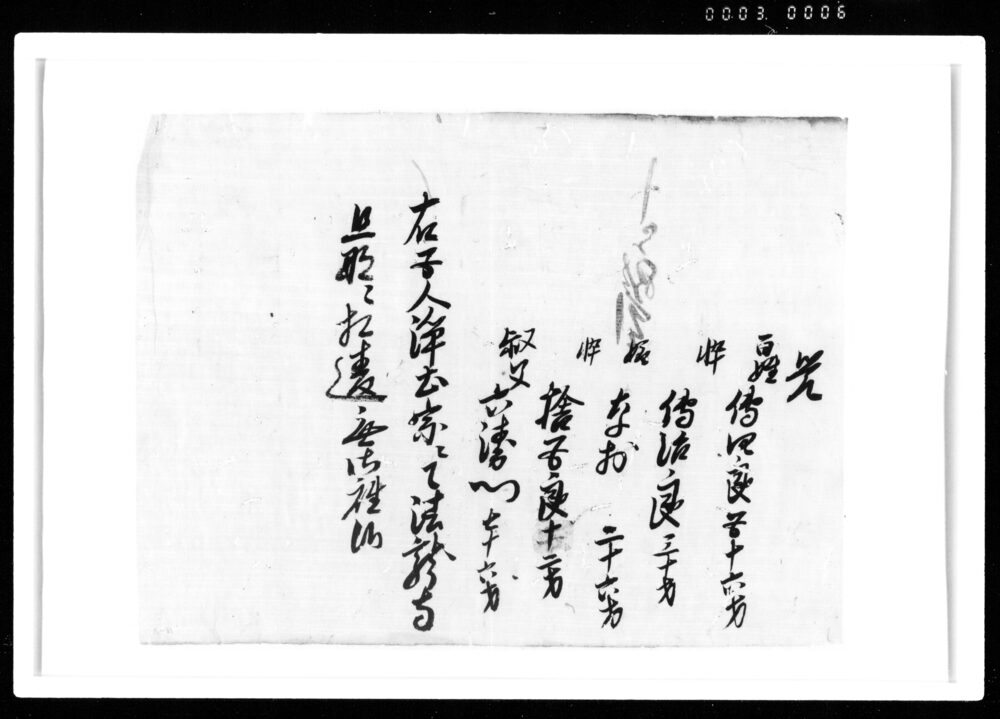 00.03. 0006
覚
百姓 傳四良 五十六才
忰 傳治良 三十才
娵 二十六才
忰 捨五良 十二才
叔父 六濟門 七十六才
右五人浄土宗ニて法龍寺
旦那ニ相違無御座候